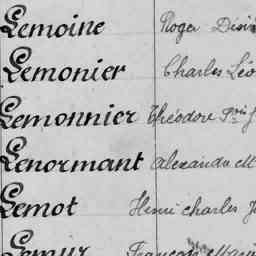 Lemoine Roger Désir
Lemonier Charles Léo
Lemonnier Théodore
Lenormant Alexandre M
Lemot Henri charles J
Lemur François Marie